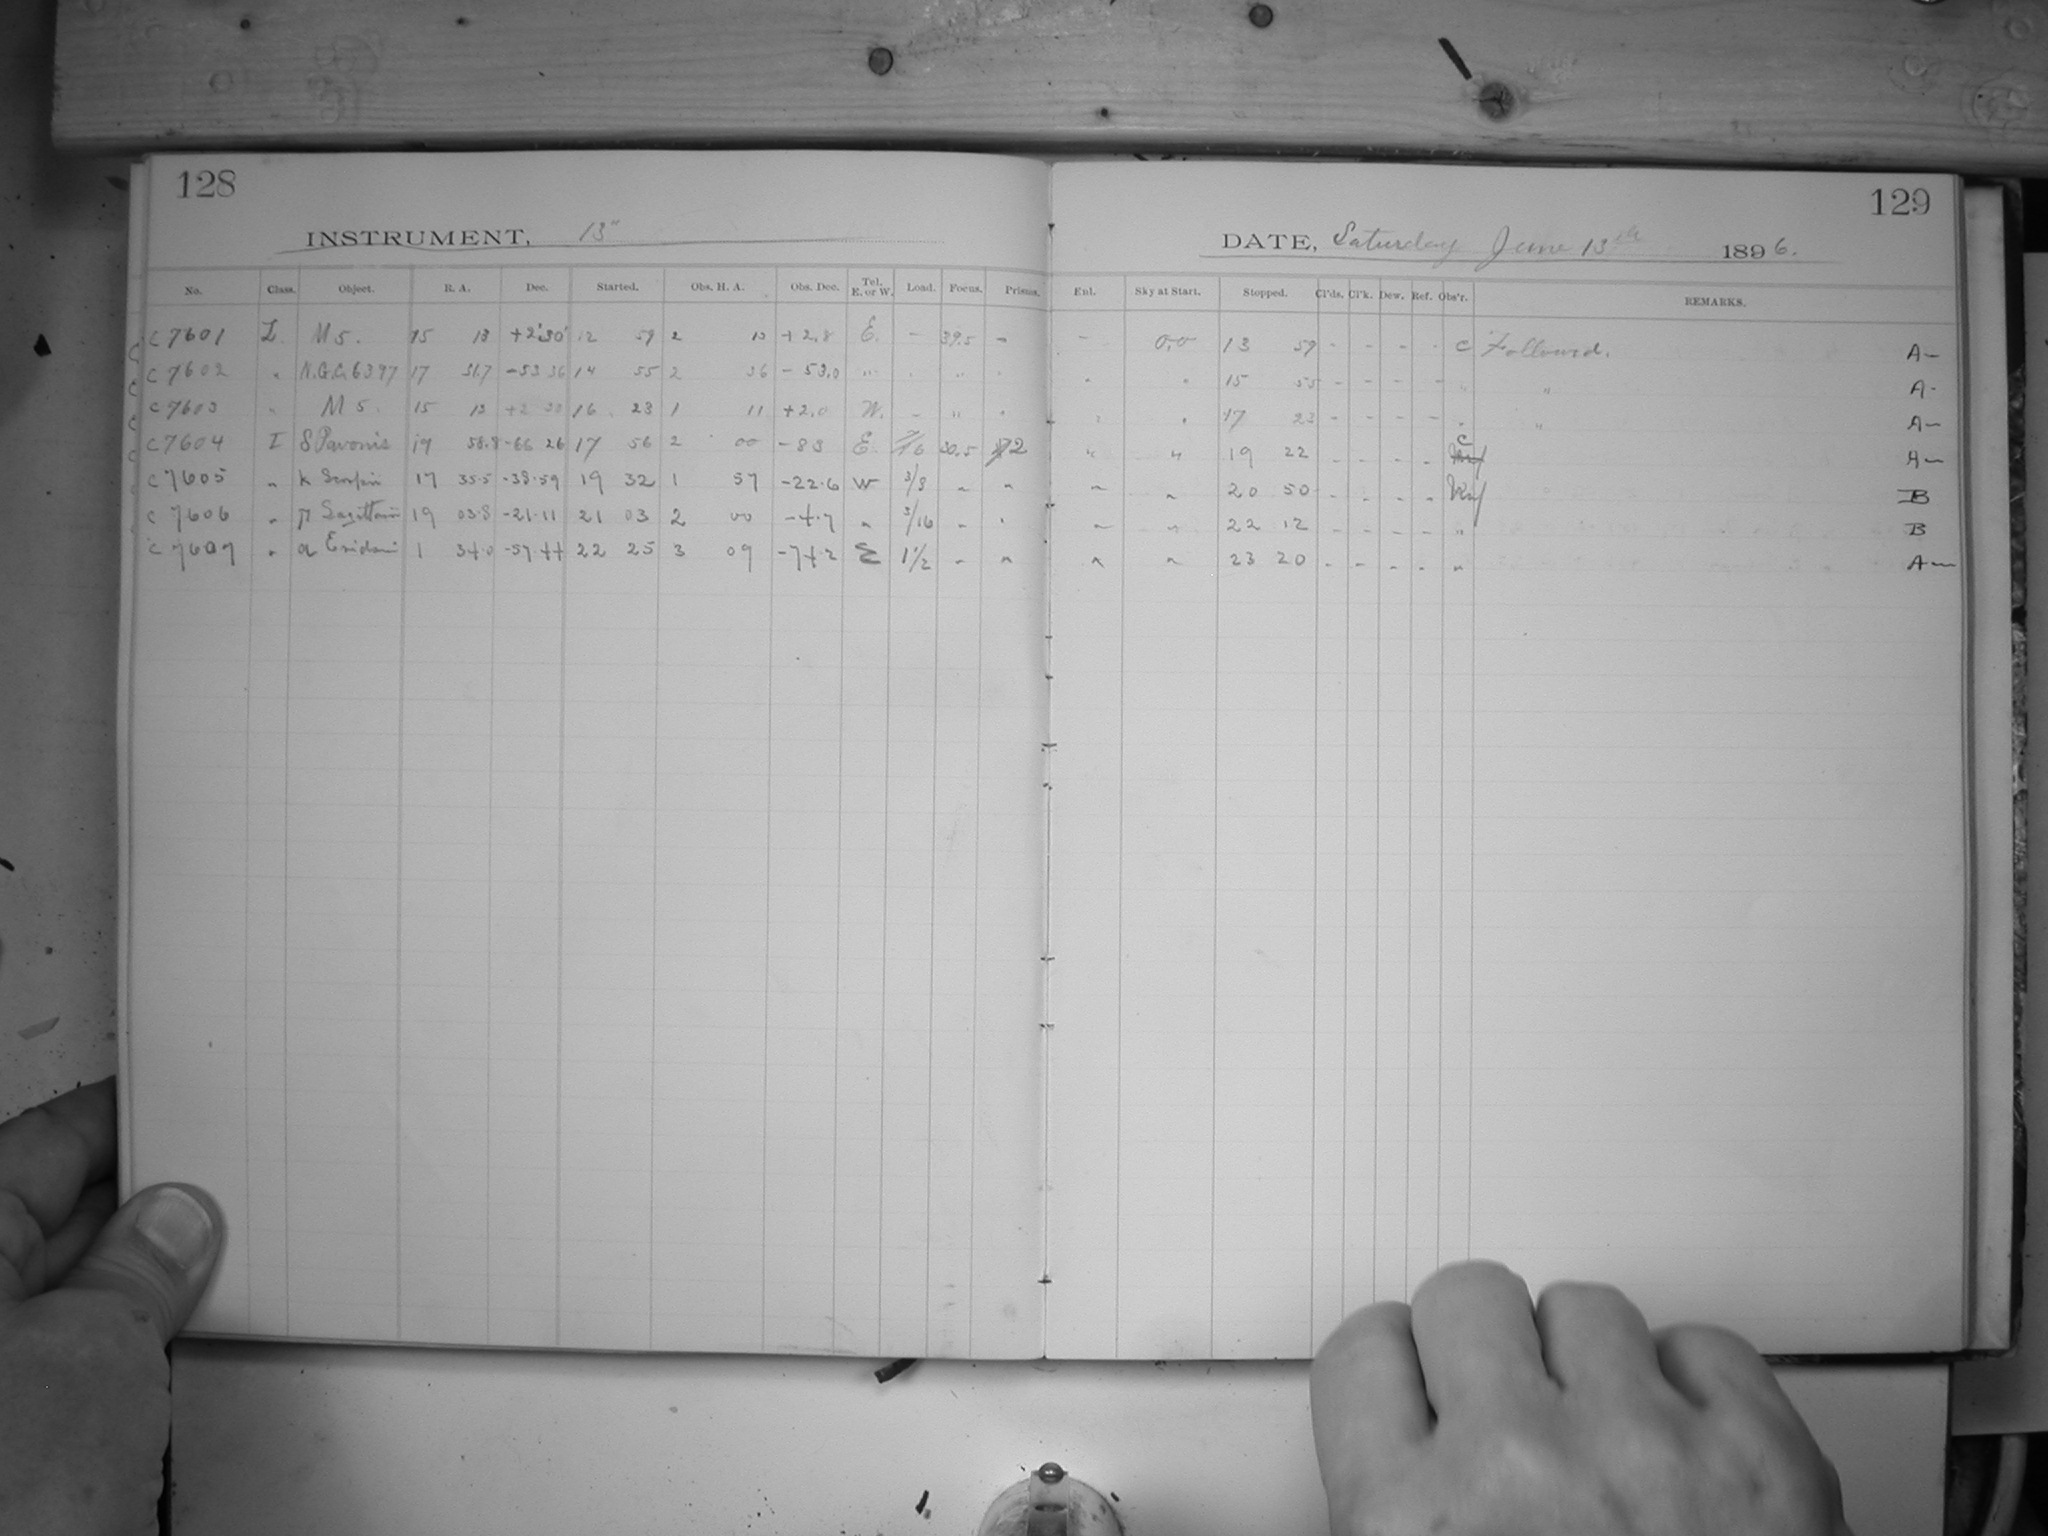 128
129
INSTRUMENT, 13"
DATE, Saturday June 13th 1896.
No. Class. Object. R. A. Dec. Started. Obs. H. A. Obs. Dec. Tel. E. or W. Load. Focus. Prisms. Enl. Sky at Start. Stopped. Cl'ds. Cl'k. Dew. Ref. Obs'r. REMARKS.
C 7601 L. M 5. 15 13 +2°30' 12 59 2 13 +2.8 E. - 39.5 - - 0.0 13 59 - - - - C Followed. A-
C 7602 " N.G.C. 6397 17 31.7 -53 36 14 55 2 36 -53.0 " . " . " " 15 55 - - - - " " A-
C 7603 " M 5. 15 13 +2 30 16 23 1 11 +2.0 W. - " " " " 17 23 - - - - " " A-
C 7604 I S Pavonis 19 58.8 -66 26 17 56 2 00 -83 E. 30.5 2 " " 19 22 - - - - C A-
C 7605 " k Scorpii 17 35.5 -38.59 19 32 1 57 -22.6 W 3/8 " " " " 20 50 - - - - B
C 7606 " π Sagittarii 19 03.8 -21.11 21 03 2 00 -4.7 " 3/16 " " " " 22 12 - - - - " B
C 7607 " α Eridani 1 34.0 -57 44 22 25 3 09 -74.2 E 1 1/2 " " " " 23 20 - - - - " A-